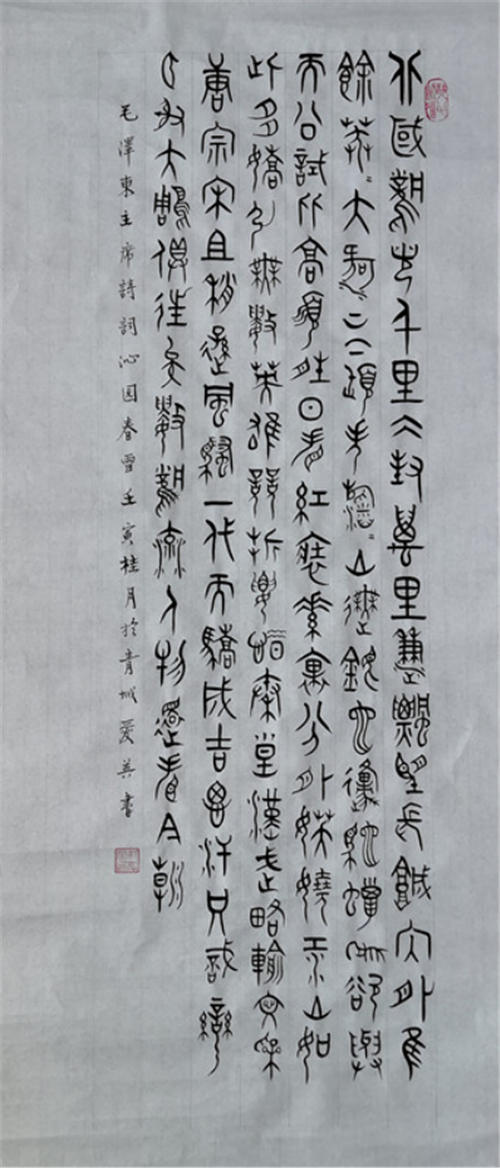 北國風光千里冰封萬里雪飄望長城內外惟
餘莽〻大河上下頓失滔〻山舞銀蛇原馳蠟象欲與
天公試比高須晴日看紅裝素裹分外妖嬈江山如
此多嬌引無數英雄競折腰惜秦皇漢武略輸文采
唐宗宋且稍遜風騷一代天驕成吉思汗只識彎
弓射大鵰俱往矣數風流人物還看今朝
毛澤東主席詩詞沁园春雪壬寅桂月於青城愛書